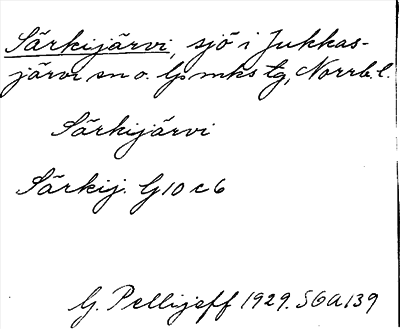 Särkijärvi, sjö i Jukkas-
järvi sn o. lpmks tg, Norrb. l.
Särkijärvi
Särkij. G10c6
G. Pellijeff 1929. SGA139